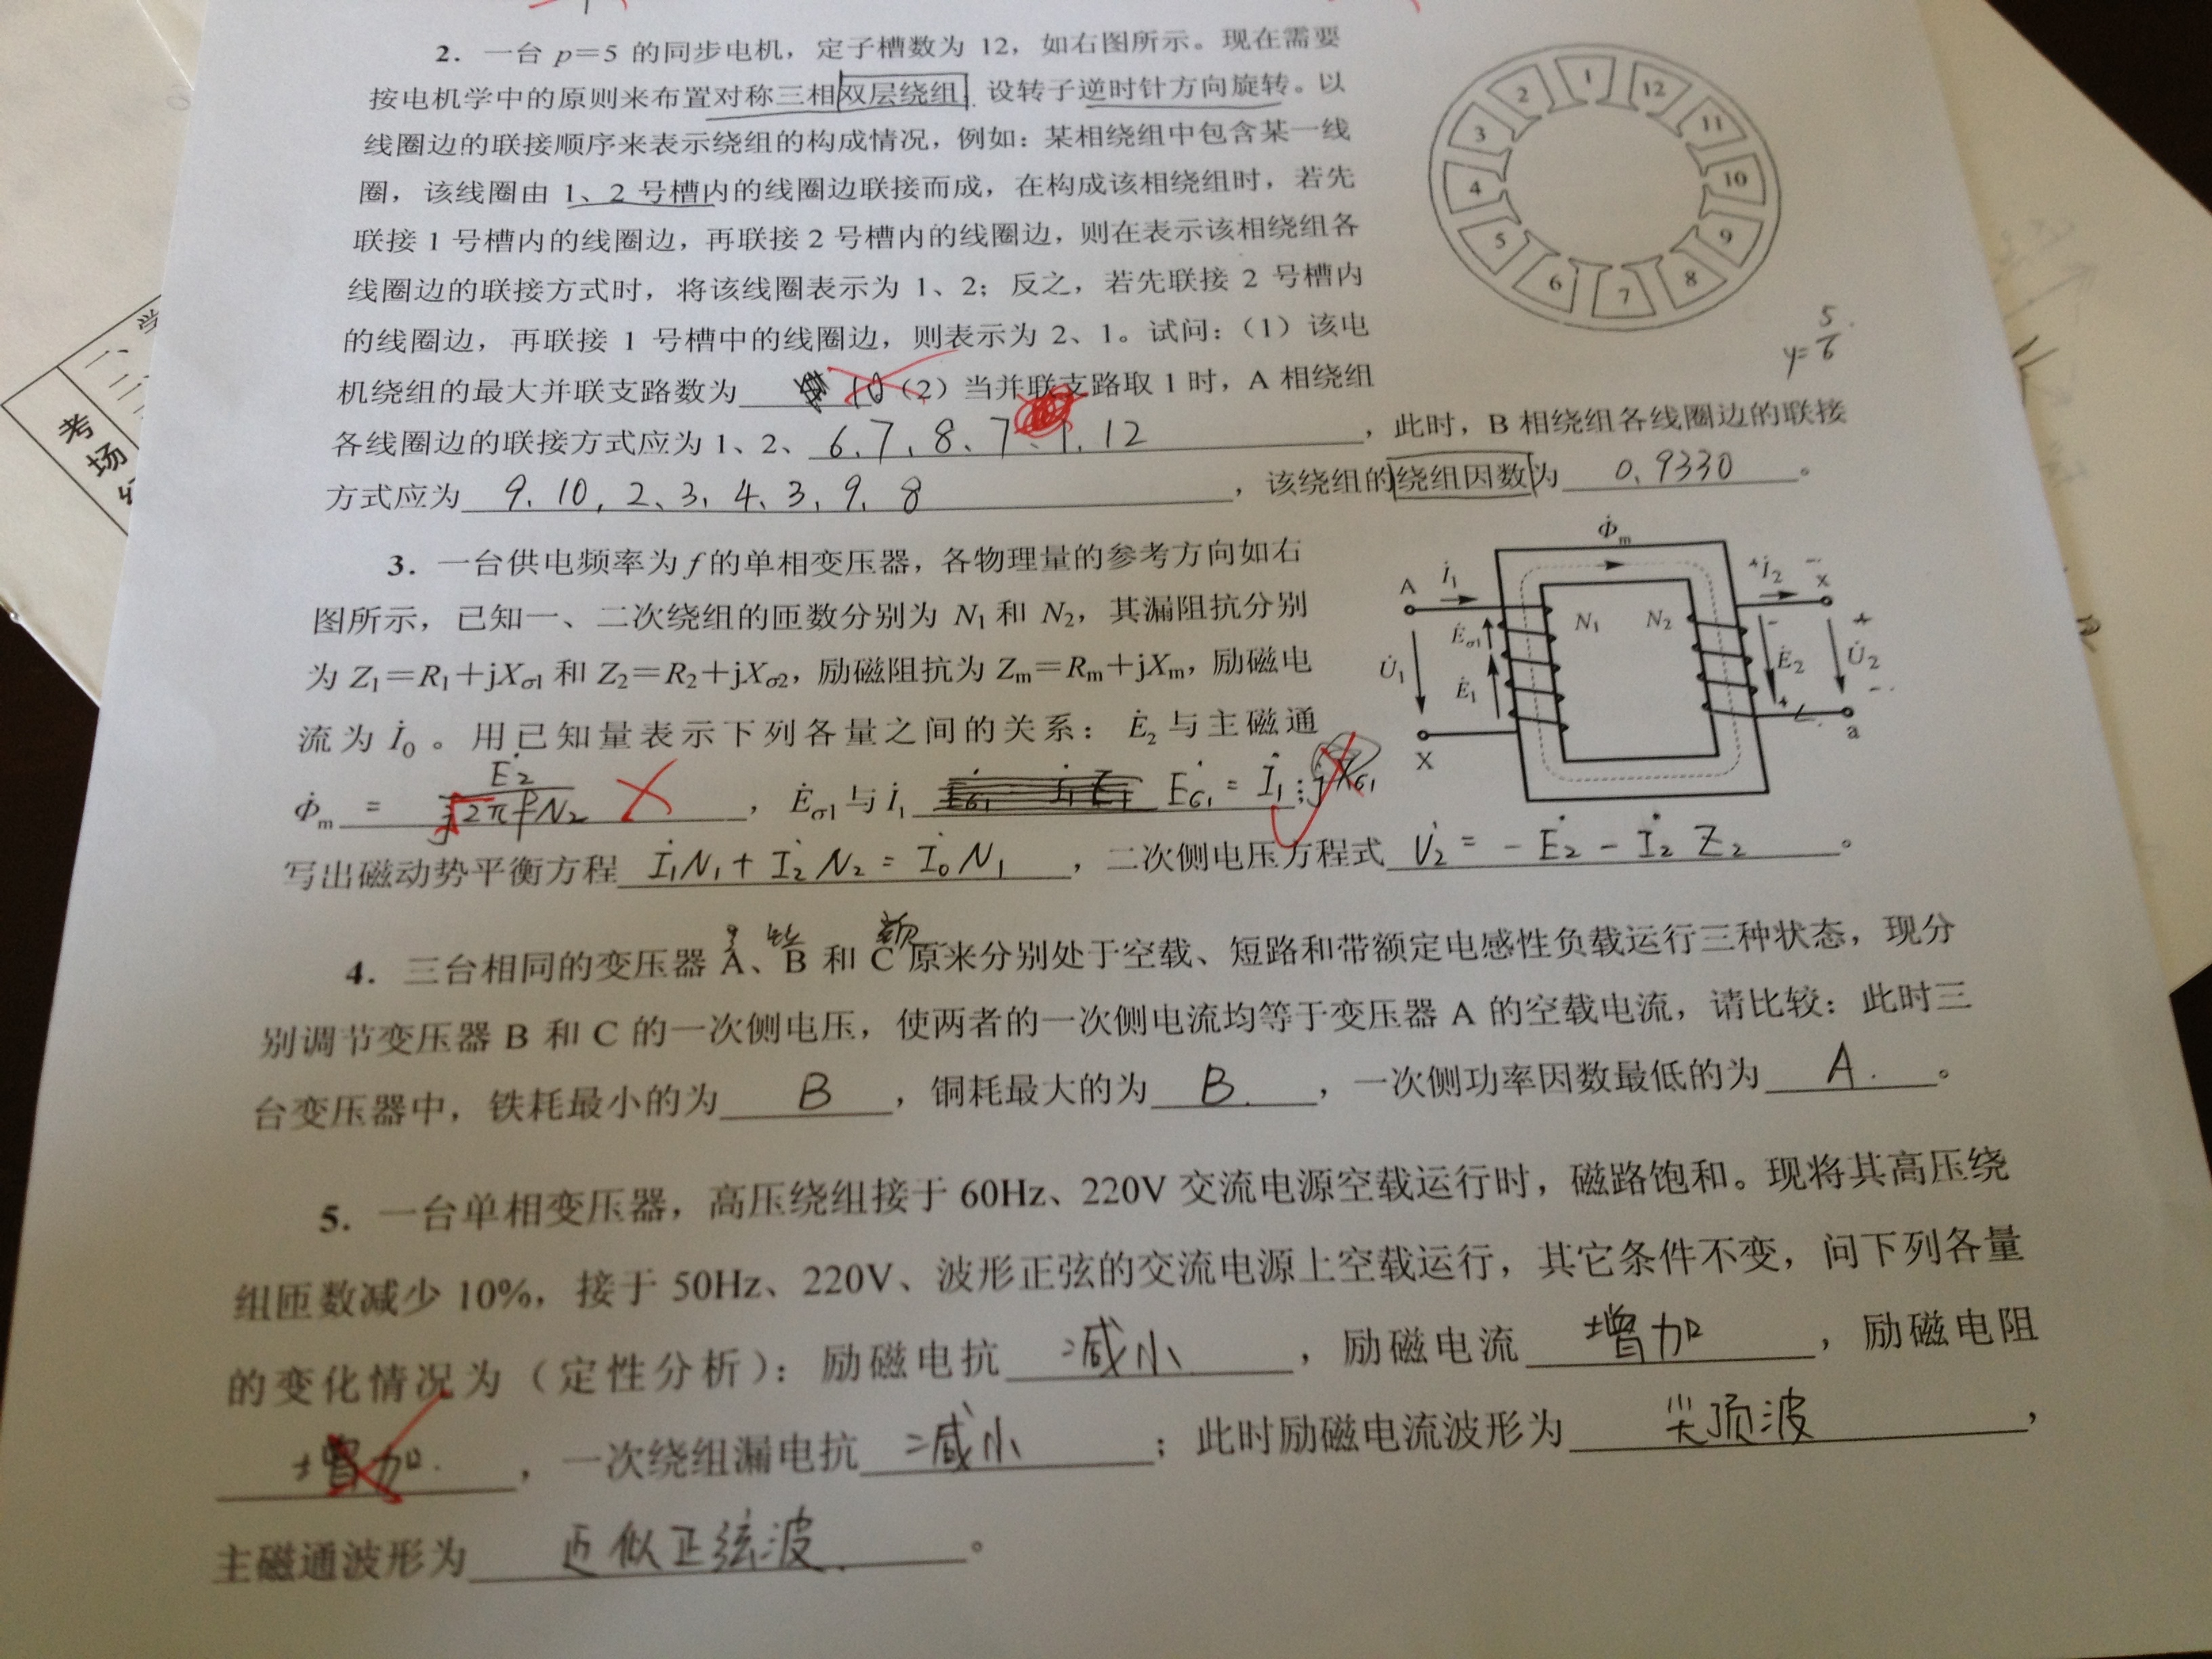 2. 一台 p=5 的同步电机，定子槽数为 12，如右图所示。现在需要
按电机学中的原则来布置对称三相双层绕组。设转子逆时针方向旋转。以
线圈边的联接顺序来表示绕组的构成情况，例如：某相绕组中包含某一线
圈，该线圈由 1、2 号槽内的线圈边联接而成，在构成该相绕组时，若先
联接 1 号槽内的线圈边，再联接 2 号槽内的线圈边，则在表示该相绕组各
线圈边的联接方式时，将该线圈表示为 1、2；反之，若先联接 2 号槽内
的线圈边，再联接 1 号槽中的线圈边，则表示为 2、1。试问：（1）该电
机绕组的最大并联支路数为 10 （2）当并联支路取 1 时，A 相绕组
各线圈边的联接方式应为 1、2、6、7、8、7、1、12，此时，B 相绕组各线圈边的联接
方式应为 9、10，2、3、4、3、9、8，该绕组的绕组因数为 0.9330。
1
2
3
4
5
6
7
8
9
10
11
12
y=5/6
3. 一台供电频率为 f 的单相变压器，各物理量的参考方向如右
图所示，已知一、二次绕组的匝数分别为 N₁ 和 N₂，其漏阻抗分别
为 Z₁=R₁+jXσ1 和 Z₂=R₂+jXσ2，励磁阻抗为 Zm=Rm+jXm，励磁电
流为 İ₀。用已知量表示下列各量之间的关系：Ė₂ 与主磁通
Φ̇m = Ė₂/(j√2πfN₂)，Ėσ1 与 İ₁ Ėσ1 = İ₁ jXσ1；
写出磁动势平衡方程 İ₁N₁+İ₂N₂=İ₀N₁，二次侧电压方程式 U̇₂=-Ė₂-İ₂Z₂。
Φ̇m
A İ₁ +İ₂ - x
N₁ N₂
Ėσ1
U̇₁ Ė₁ - Ė₂ + + U̇₂ -
X a
空 短 额
4. 三台相同的变压器 A、B 和 C 原来分别处于空载、短路和带额定电感性负载运行三种状态，现分
别调节变压器 B 和 C 的一次侧电压，使两者的一次侧电流均等于变压器 A 的空载电流，请比较：此时三
台变压器中，铁耗最小的为 B，铜耗最大的为 B.，一次侧功率因数最低的为 A.。
5. 一台单相变压器，高压绕组接于 60Hz、220V 交流电源空载运行时，磁路饱和。现将其高压绕
组匝数减少 10%，接于 50Hz、220V、波形正弦的交流电源上空载运行，其它条件不变，问下列各量
的变化情况为（定性分析）：励磁电抗 减小，励磁电流 增加，励磁电阻
增加.，一次绕组漏电抗 减小；此时励磁电流波形为 尖顶波，
主磁通波形为 近似正弦波.。
考
场